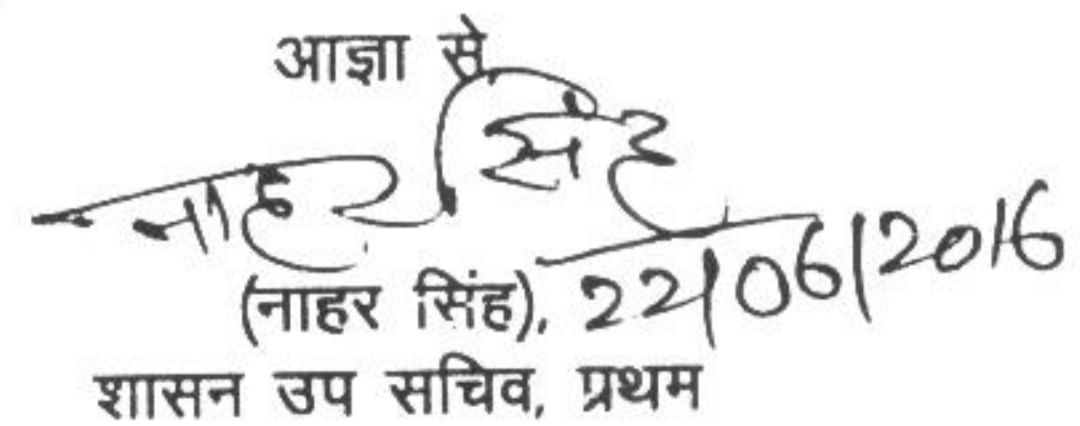 आज्ञा से,
नाहर सिंह
(नाहर सिंह), 22/06/2016
शासन उप सचिव, प्रथम